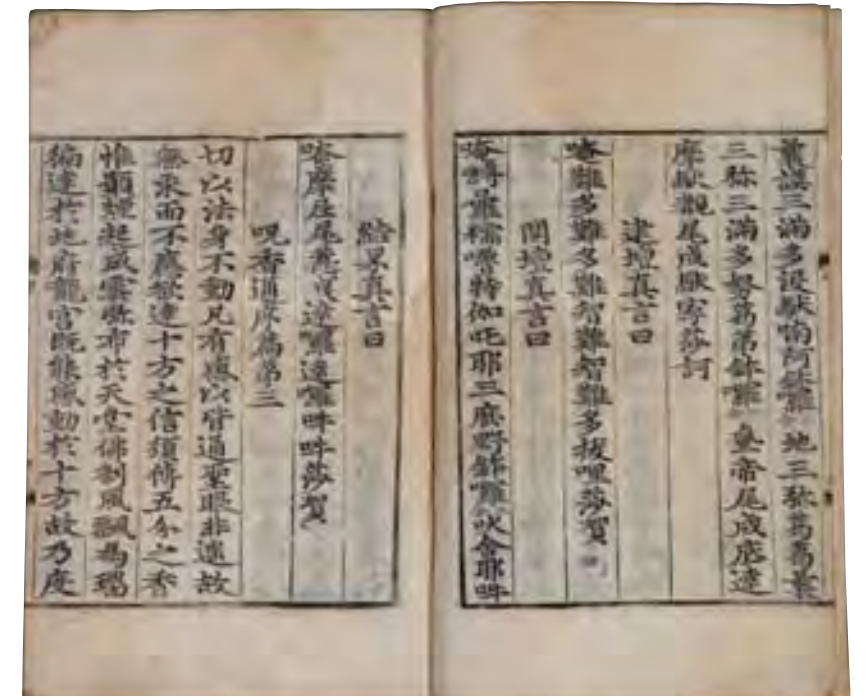 曩謨三滿多没馱喃阿鉢囉地三弥葛葛曩
三弥三滿多努葛帝鉢囉帝尾成底達
摩馱覩尾成馱寧莎訶
建壇真言曰
唵難多難多難智難智難多拔哩莎賀
開壇真言曰
唵嚕特伽吒耶三底野鉢囉吠舍耶吽
結界真言曰
唵摩尼尾惹曳達囉達囉吽吽莎賀
呪香通序篇第三
切以法身不動凡有感以皆通聖眼非遥故
無求而不應欲達十方之信須傅五分之香
惟願起盛雲散布於天堂佛刹風飄為瑞
徧達於地府龍宮旣能感動於十方故乃度